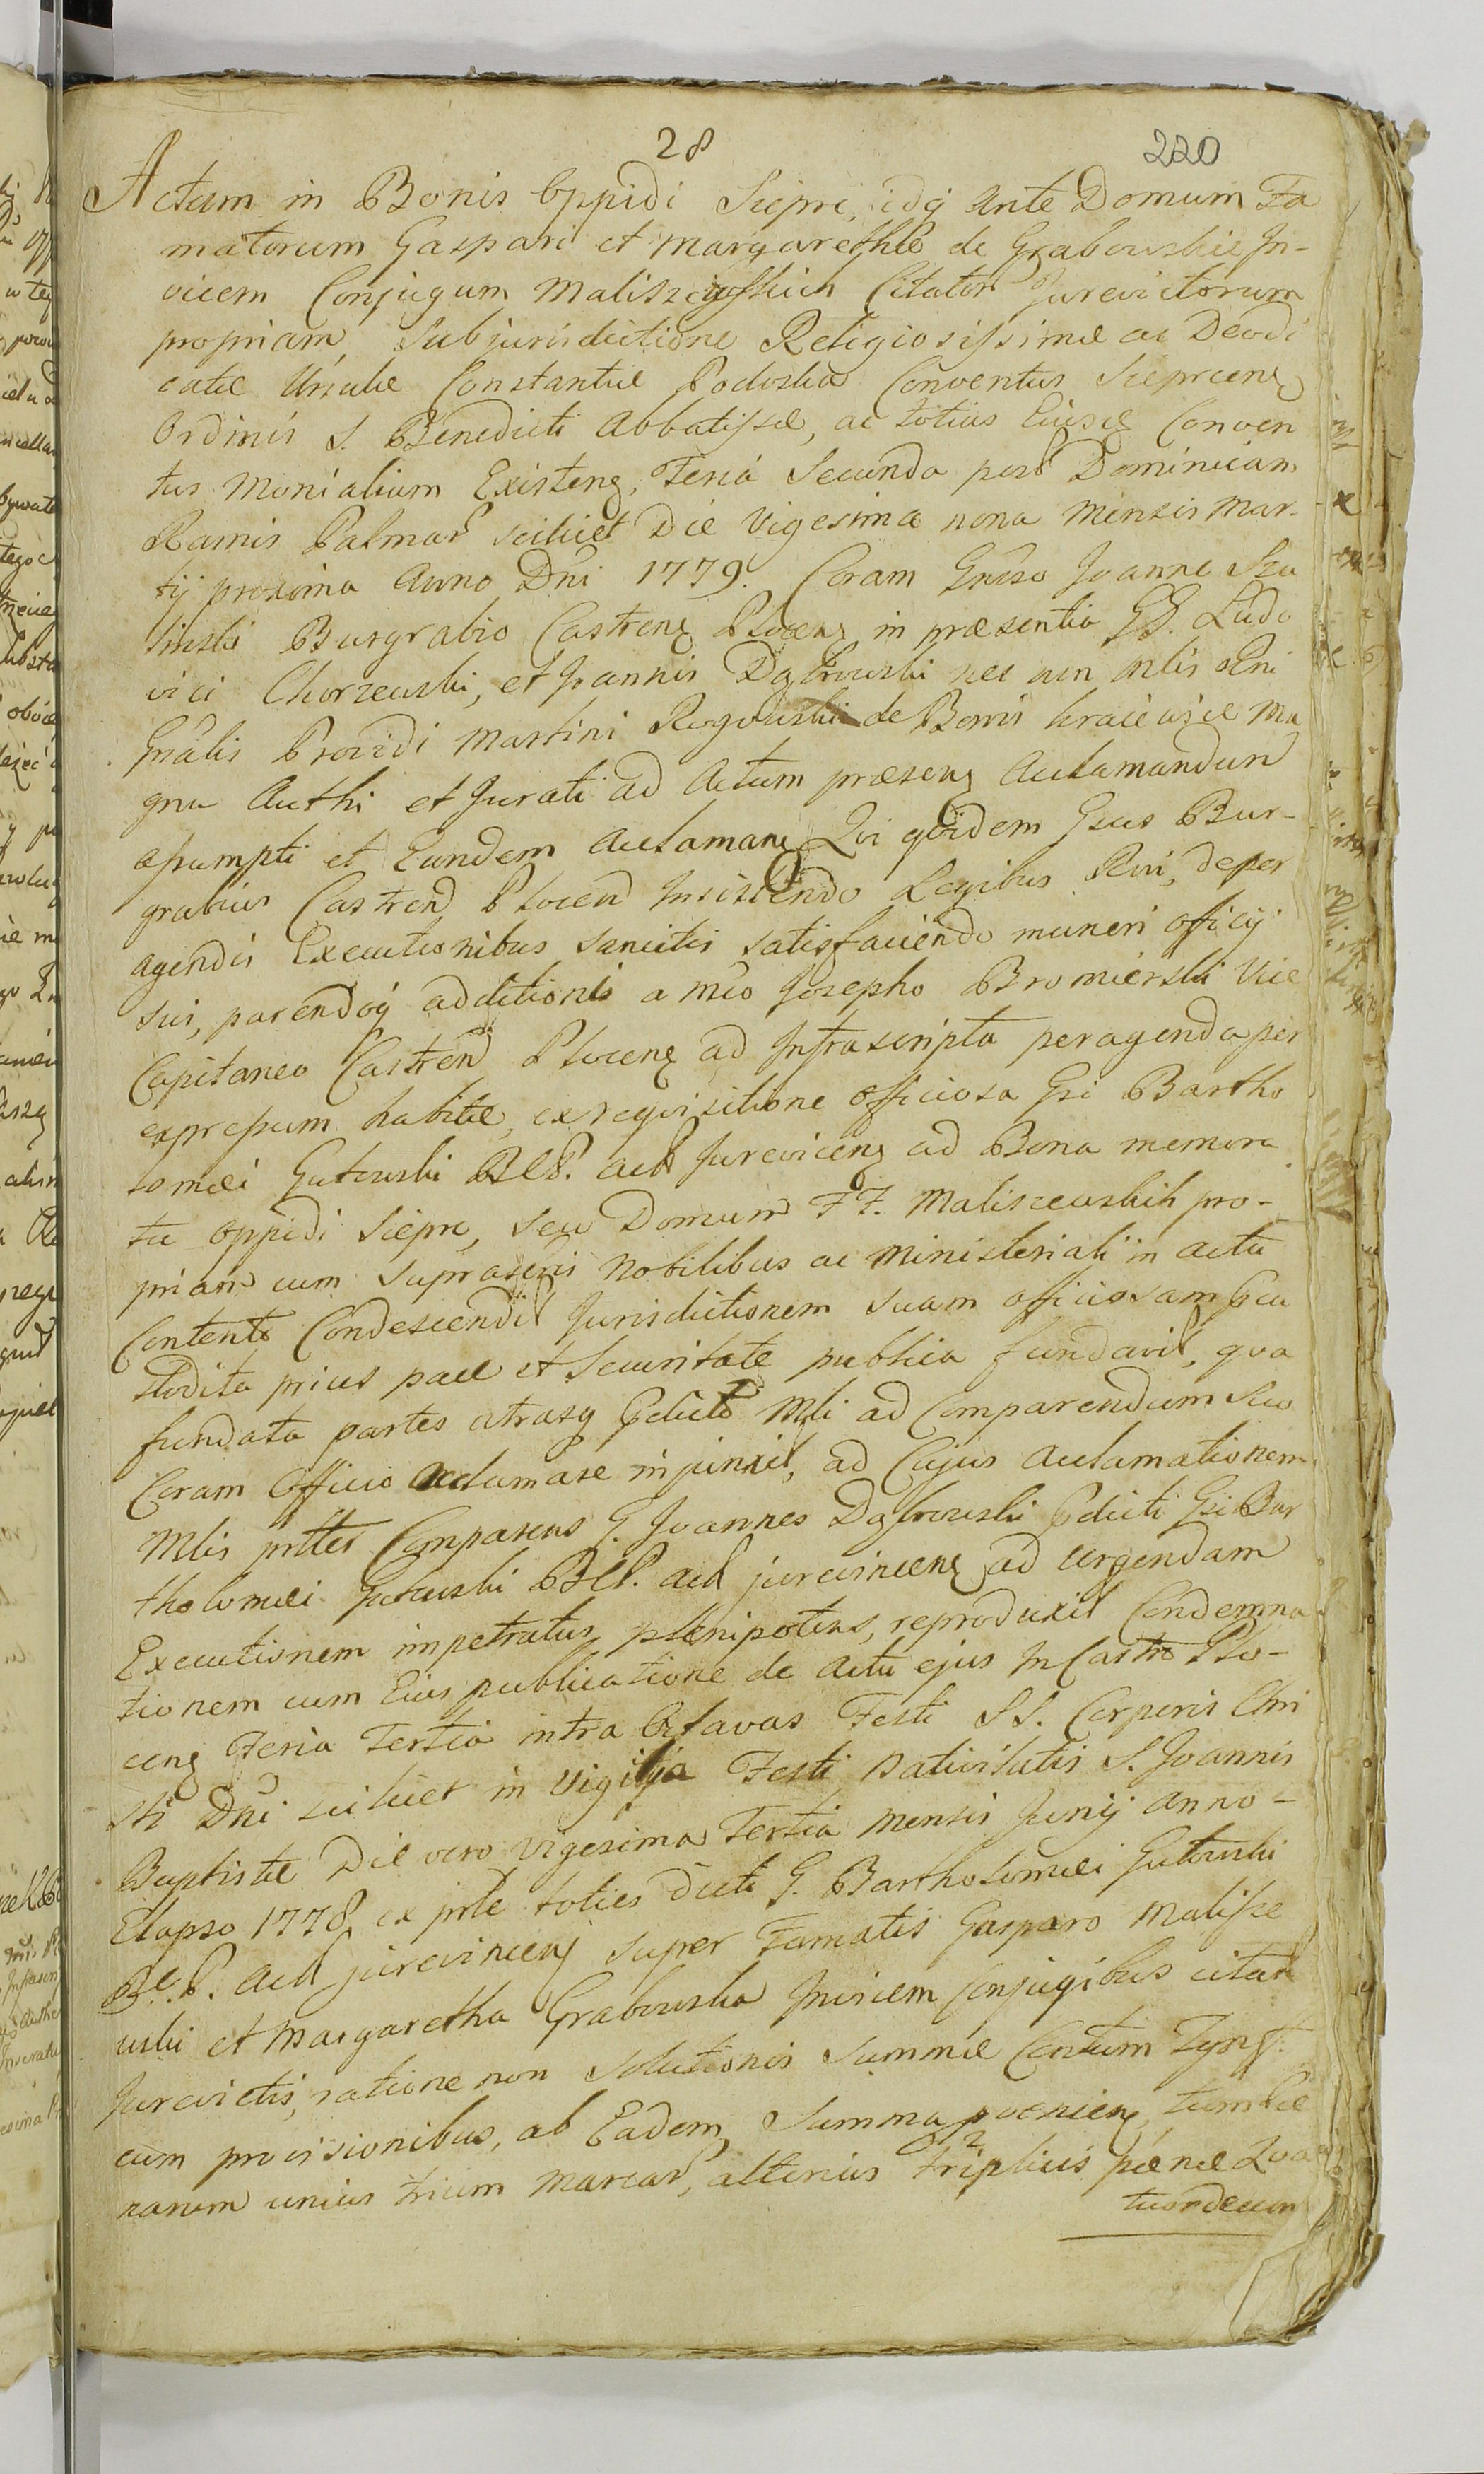 28
220
Actum in Bonis Oppidi Siepre, idq ante Domum Fa
matorum Gaspari et Margarethæ de Grabowskie In-
vicem Conjugum Maliszewskich Citator Jurevictorum
propriam, sub jurisdictione Religiosissimæ ac Deodi
catæ Ursulæ Constantiæ Podoska Conventus Sieprcens
Ordinis S. Benedicti Abbatissæ, ac totius Eiusd Conven
tus Monialium Existens, Feria Secunda post Dominicam
Ramis Palmar scilicet Die Vigesima nona Mensis Mar-
tij proxima Anno Dni 1779. Coram Gnoso Joanne Szu
linski Burgrabio Castrens Plocens in præsentia GG. Ludo
vici Chorzewski, et Joannis Dąbrowski nec non Mlis Rni
Gnalis Providi Martini Rogowski de Bonis
gna Authi et Jurati ad Actum præsens Aclamandum
assumpti et Eundem aclamans Qui quidem Gsus Bur-
grabius Castren Plocen Insistendo Legibus Rni, de per
agendis Executionibus sancitis satisfaciendo muneri officij
sui, parendoq additionis a Mco Josepho Bromierski Vice
Capitaneo Castren Plocens ad Infrascripta peragenda per
expressum habitæ, ex requisitione officiosa Gsi Bartho
lomei Gutowski BCP. act Jurevicens ad Bona memora
ta oppidi Siepre, seu Domum FF. Maliszewskich pro-
priam cum suprascris Nobilibus ac Ministeriali in actu
Contento Condescendit Jurisdictionem suam officiosam
prius pace et Securitate publica fundavit, qua
fundata partes utrasq Pdicto Mli ad Comparendum seu
Coram Officio aclamare injunxit, ad Cujus Aclamationem
Mlis prttes Comparens G. Joannes Dąbrowski Pdicti Gsi Bar
tholomei Gutowski BCP. act jurevincens ad urgendam
Executionem impetratus plenipotens, reproduxit Condemna
tionem cum Eius publicatione de Actu ejus In Castro Plo-
cens Feria Tertia intra Octavas Festi SS. Corporis Chri
sti Dni scilicet in Vigilia Festi Nativitatis S. Joannis
Baptistæ Die vero vigesima Tertia Mensis Junij anno-
Elapso 1778, ex prte toties dicti G. Bartholomei Gutowski
BCP. act jurevincens super Famatis Gasparo Malisze
wski et Margaretha Grabowska Invicem Conjugibus citat
Jurevictis, ratione non solutionis summæ Centum Tynf.
cum provisionibus, ab Eadem Summa proveniens, tum
narum unius trium Marcar, alterius triplicis pænæ Qua
tuordecim